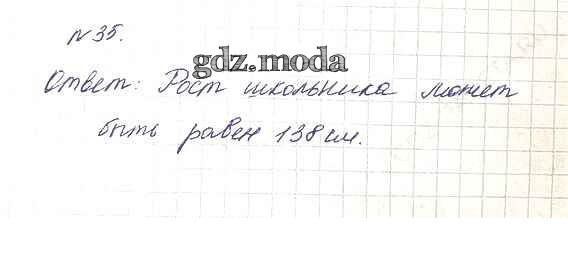 № 35.
gdz.moda
Ответ: Рост школьника может
быть равен 138 см.